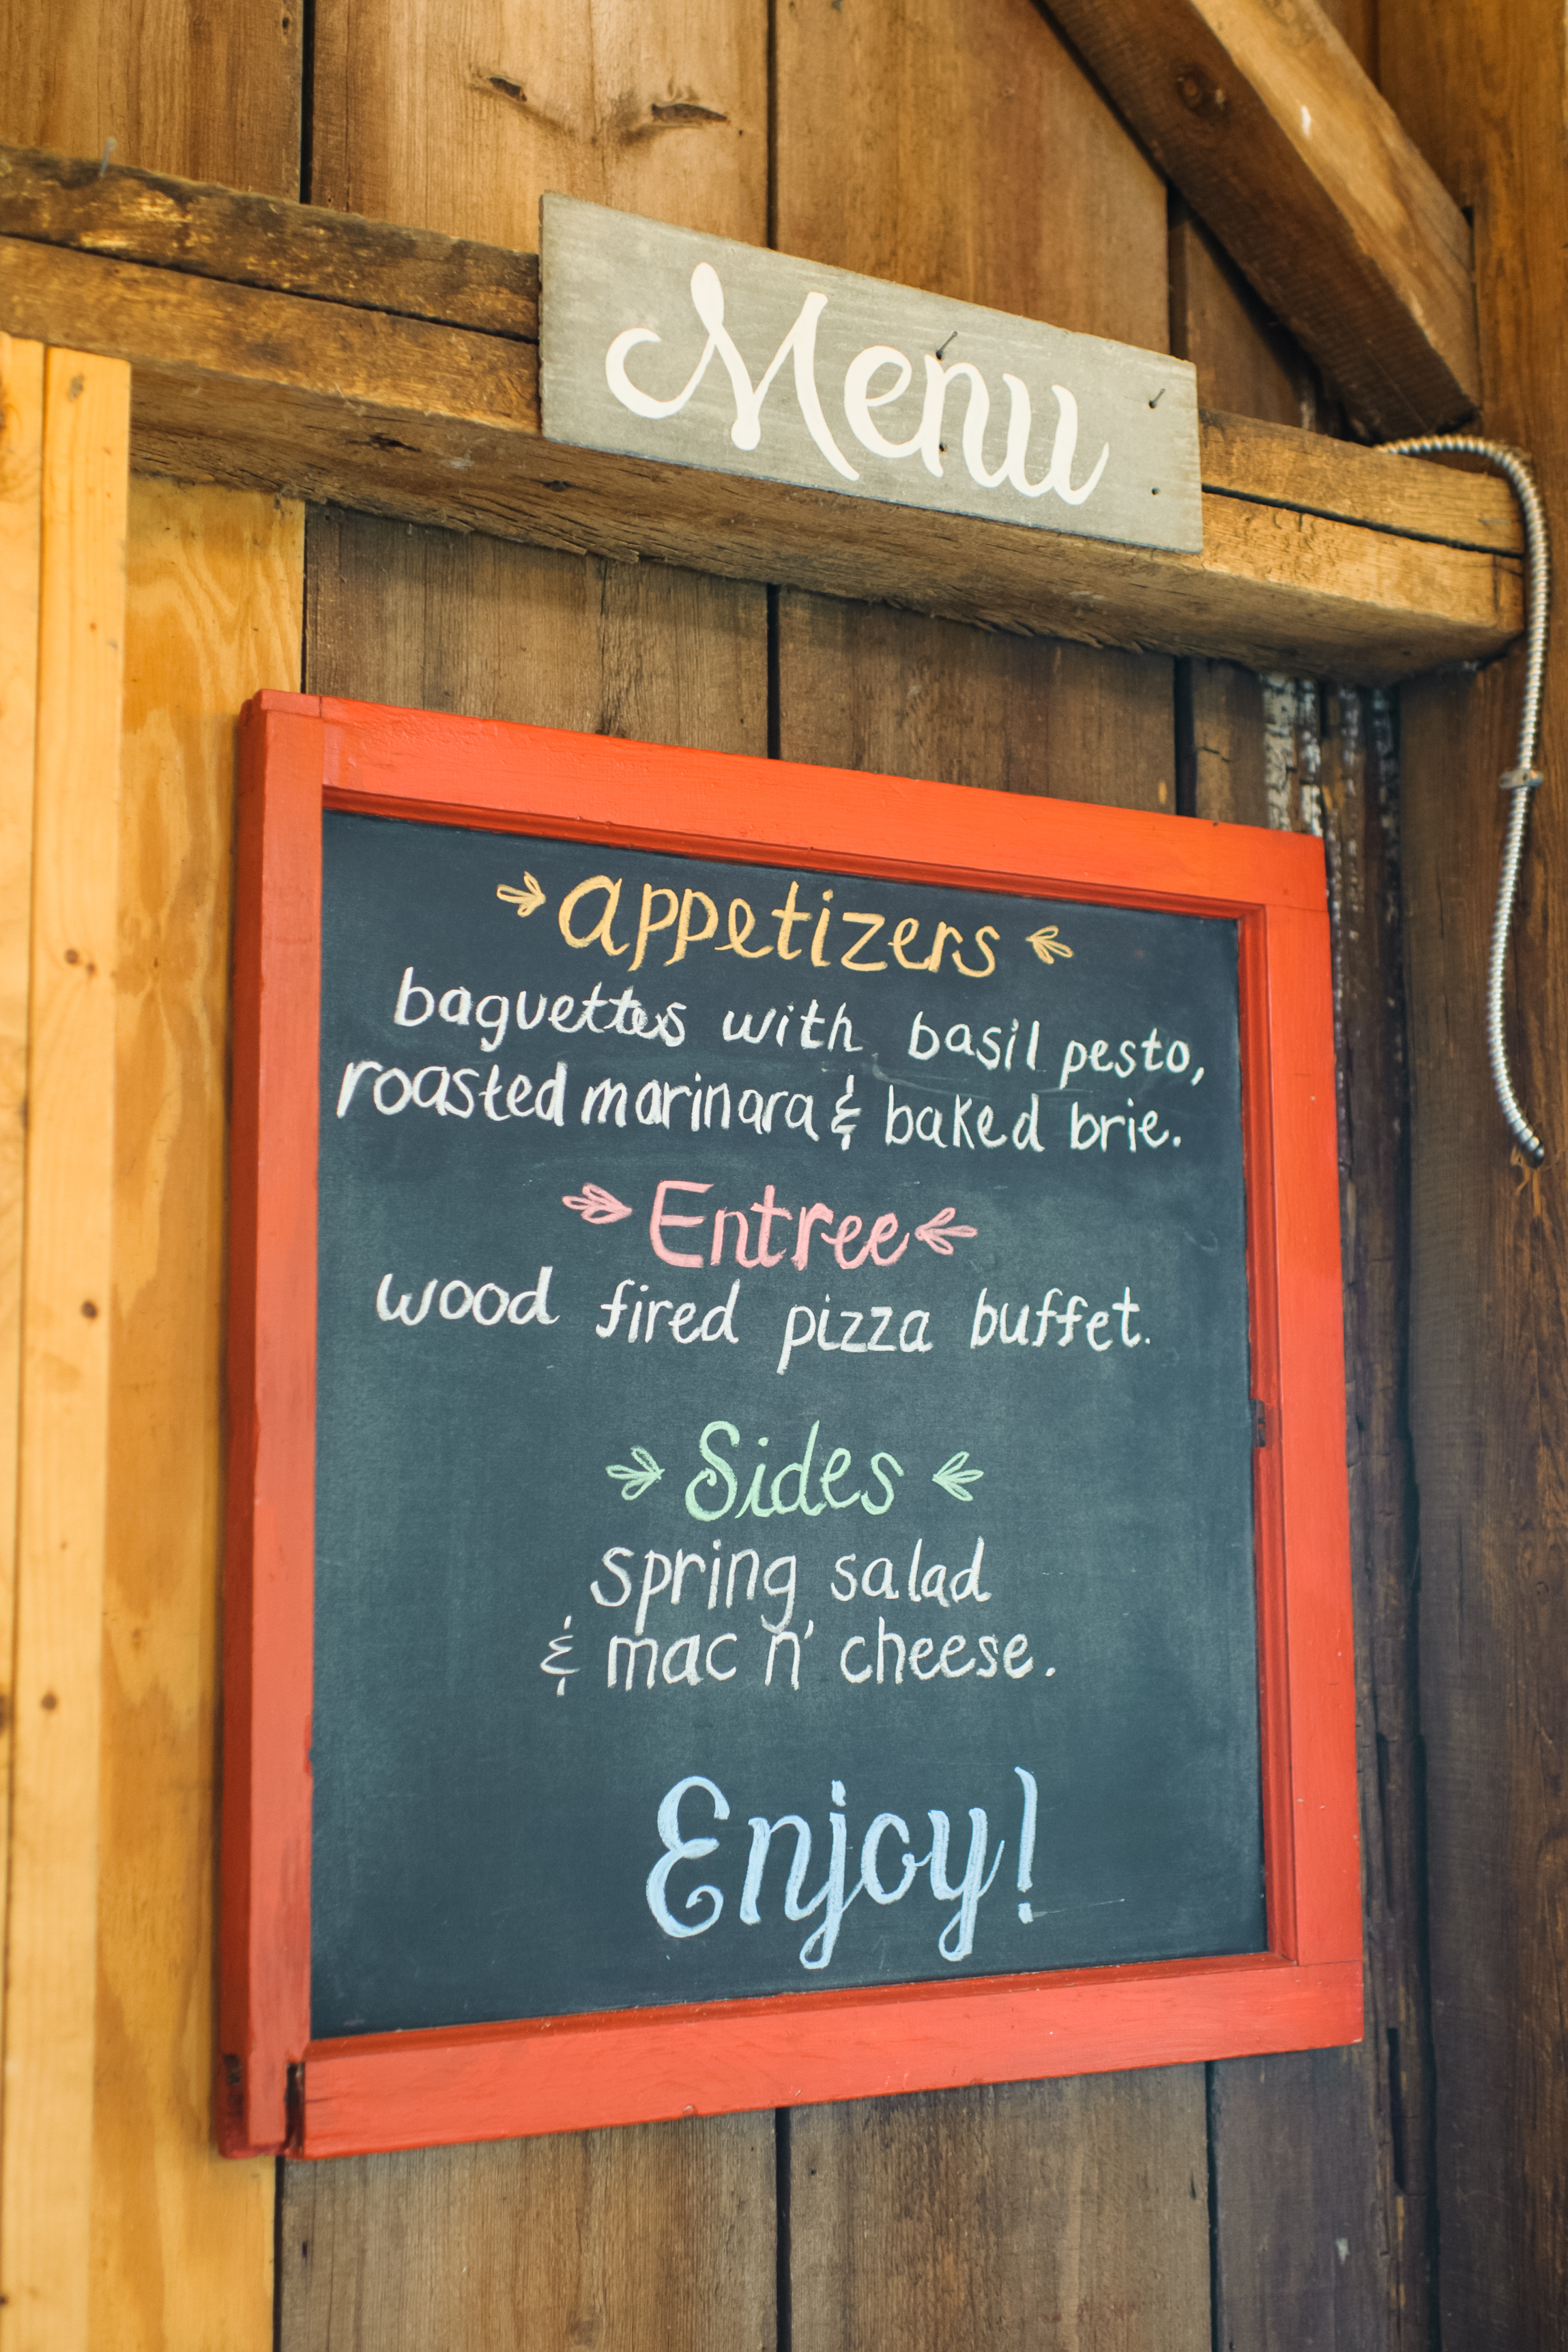 Menu
appetizers
baguettes with basil pesto,
roasted marinara & baked brie.
Entree
wood fired pizza buffet.
Sides
spring salad
& mac n' cheese.
Enjoy!